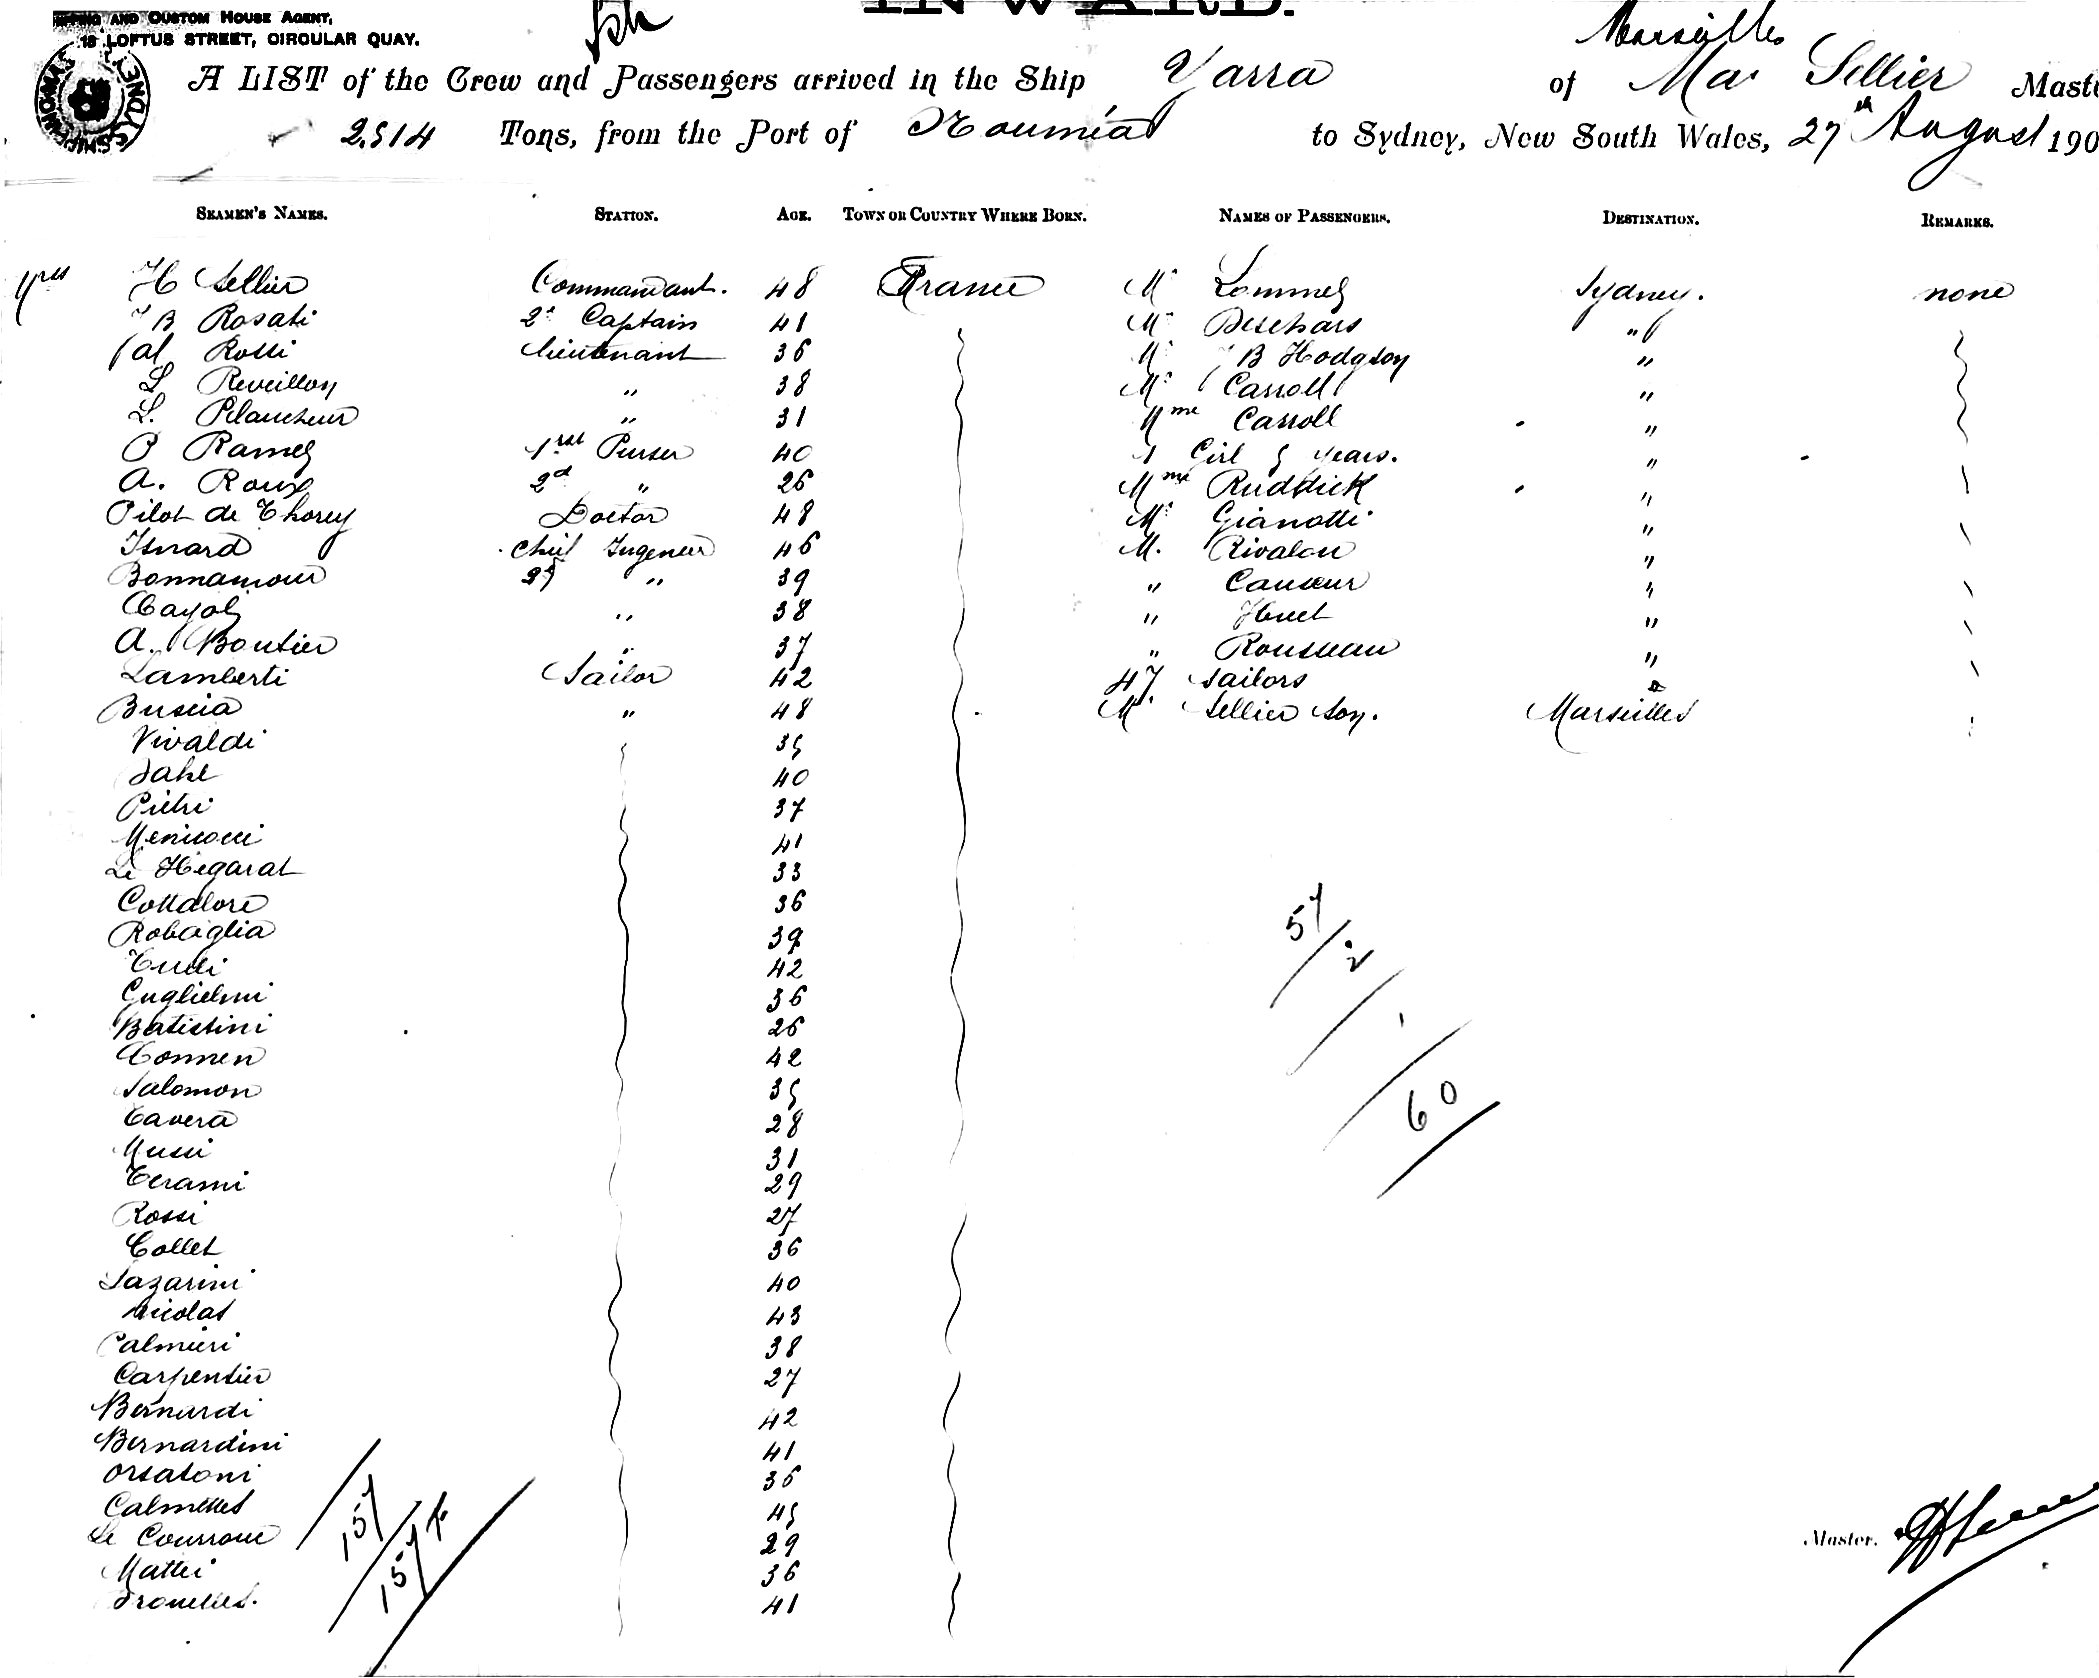 AND CUSTOM HOUSE AGENT,
18 LOFTUS STREET, CIRCULAR QUAY.
INWARD.
Marseilles
A LIST of the Crew and Passengers arrived in the Ship Yarra of Sellier Mast
2.514 Tons, from the Port of Nouméa to Sydney, New South Wales, 27th August 190
SEAMEN'S NAMES. STATION. AGE. TOWN OR COUNTRY WHERE BORN. NAMES OF PASSENGERS. DESTINATION. REMARKS.
H Sellier Commandant. 48 France Mr Lommel Sydney. none
B Rosati 2d Captain 41 Mr Deschars "
Rolli Lieutenant 36 Mr B Hodgson "
L Reveillon " 38 Mr Carroll "
L. Plancheur " 31 Mme Carroll "
P Ramel 1rst Purser 40 1 Girl 5 years. "
A. Roux 2d " 26 Mme Ruddick "
Pilot de Thorey Doctor 48 Mr Gianotti "
Isnard Chief Ingeneer 46 M. Rivalou "
Bonnamour 2d " 39 " "
Cayol " 38 " Huet "
A. Boutier " 37 " Rousseau "
Lamberti Sailor 42 47 sailors "
Buscia " 48 Mr Sellier son. Marseilles
Vivaldi 35
40
Pietri 37
Menicucci 41
Le Hegarat 33
Cottalore 36
Robaglia 39
42
Guglielmi 36
Batistini 26
Connen 42
Salomon 35
Cavera 28
31
Terami 29
Rossi 27
Collet 36
57
2
1
60
Lazarini 40
Nicolas 43
Palmieri 38
Carpentier 27
Bernardi 42
Bernardini 41
Orsatoni 36
Calmettes 45
Le 29
Mattei 36
41
157
157
Master.